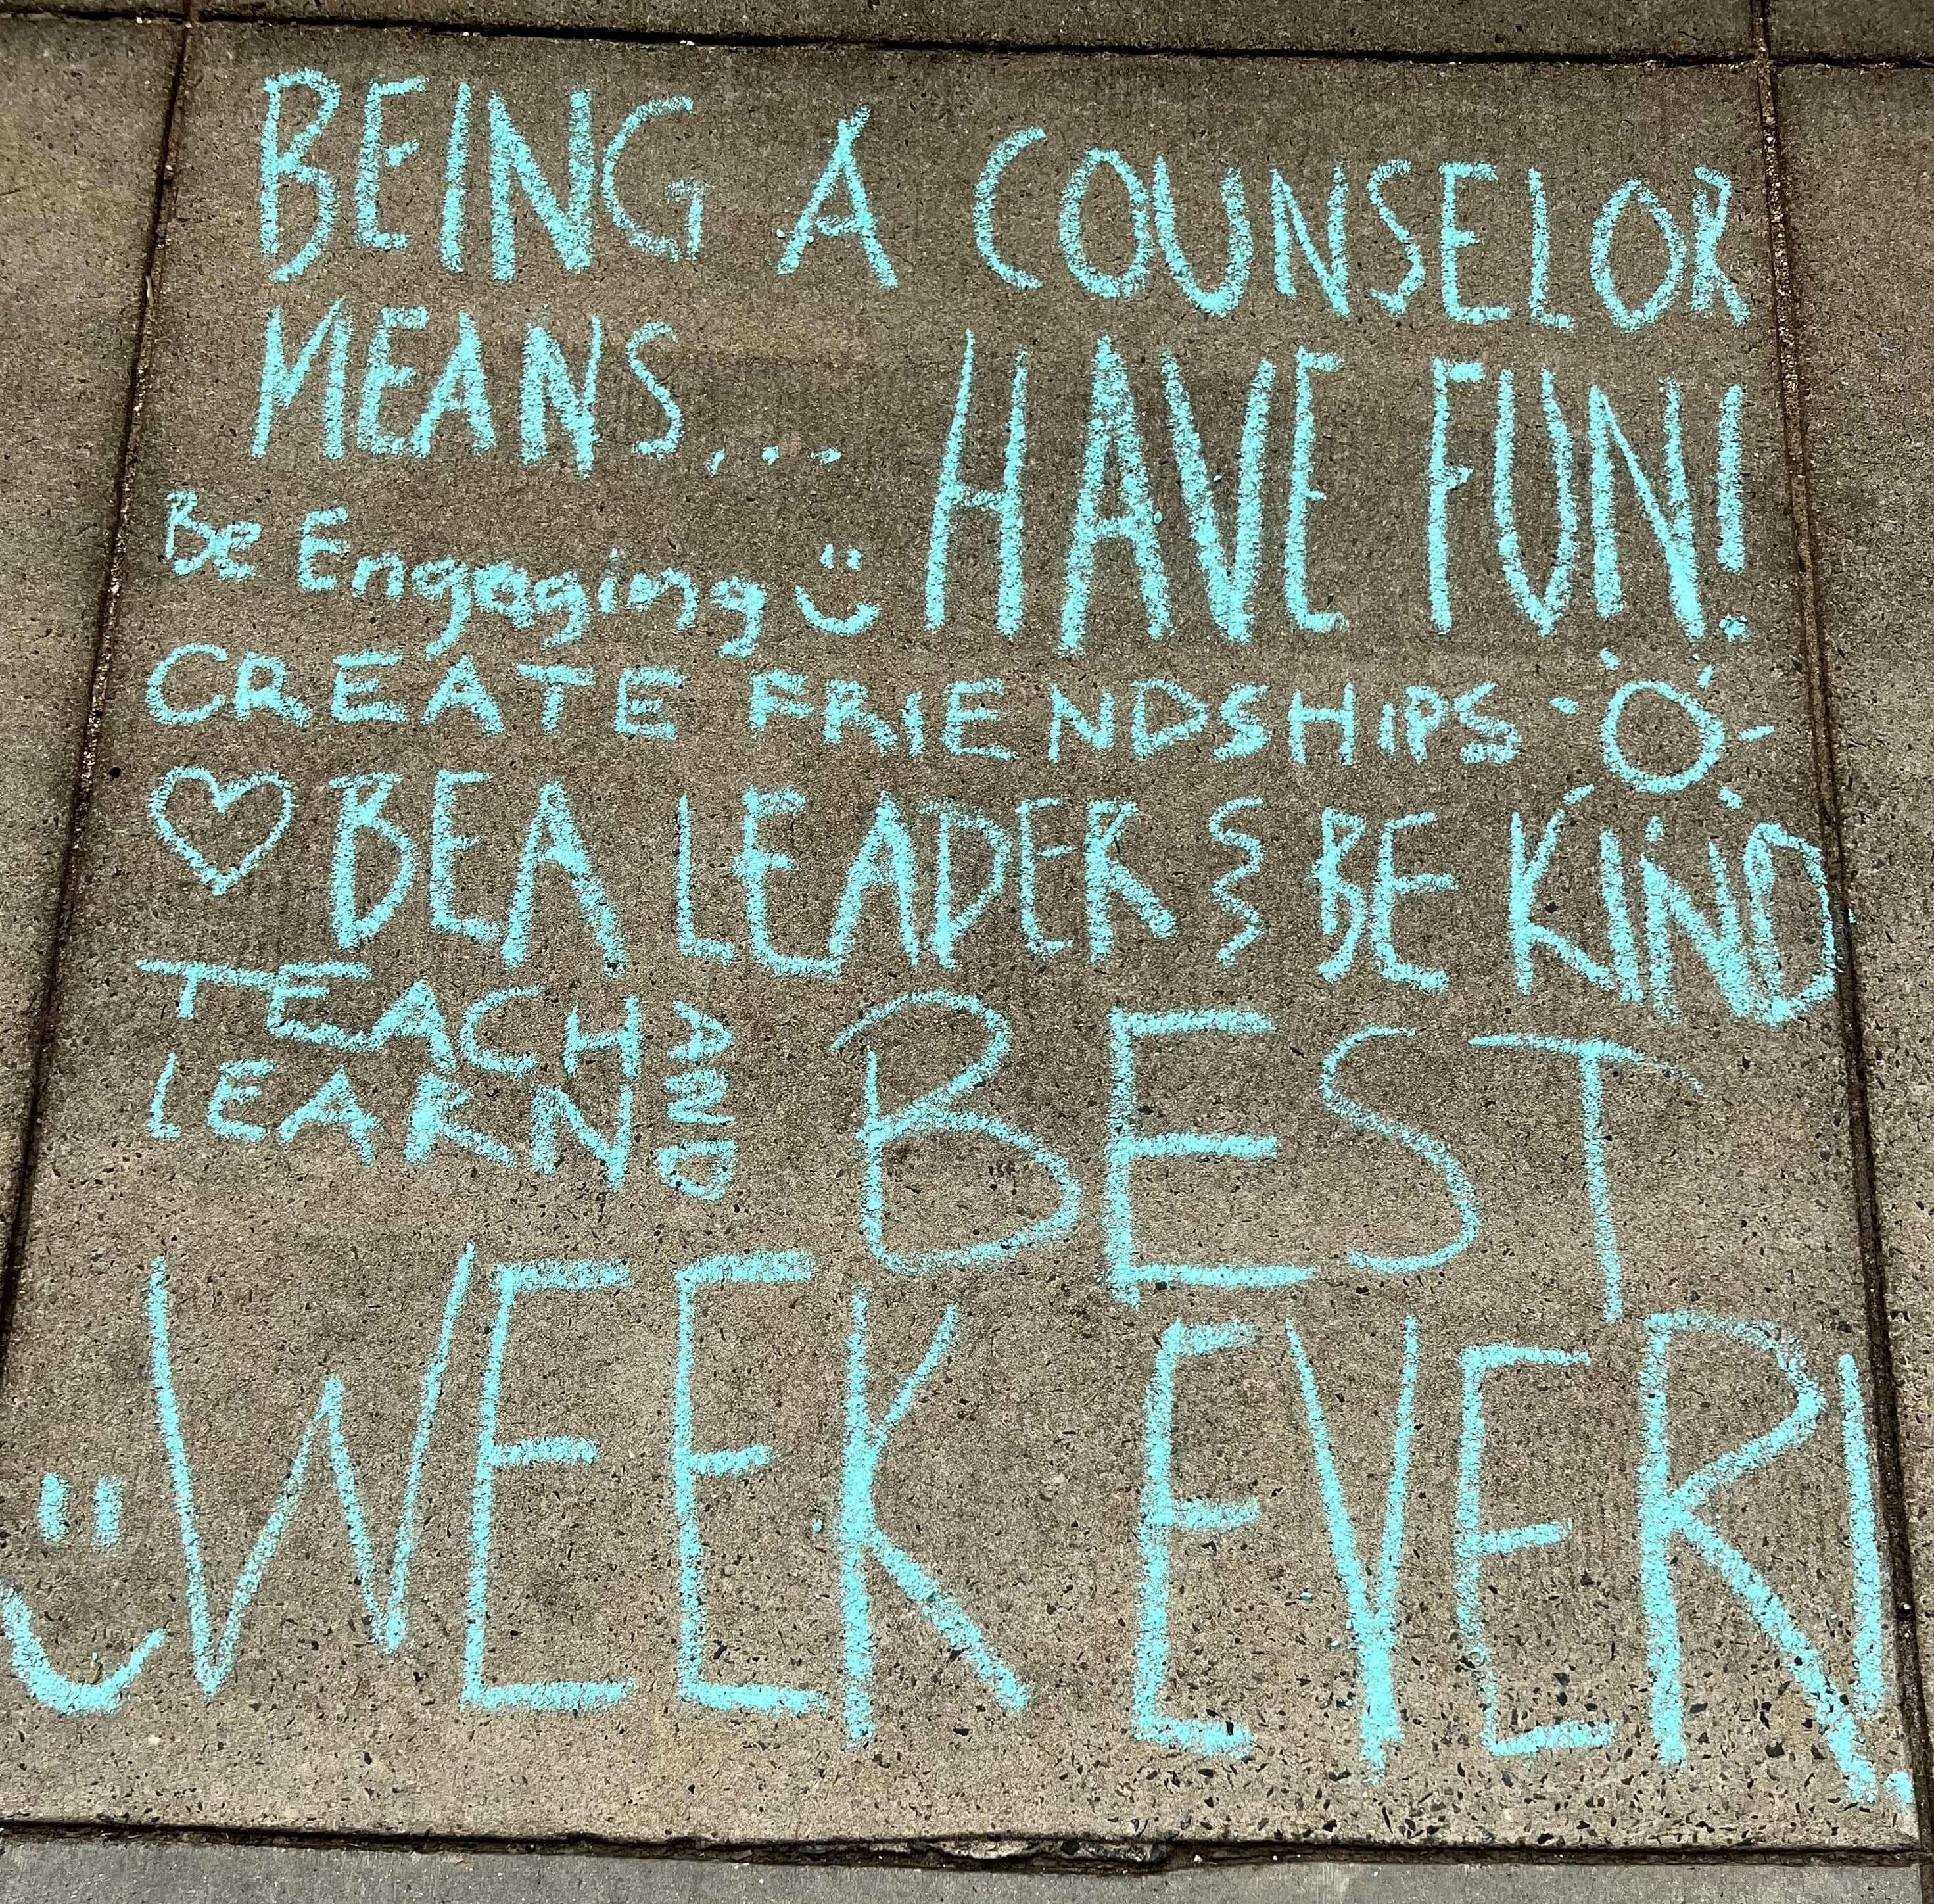 BEING A COUNSELOR
MEANS... HAVE FUN!
Be Engaging
CREATE FRIENDSHIPS
BE A LEADER & BE KIND
TEACH AND
LEARN
BEST
WEEK EVER!